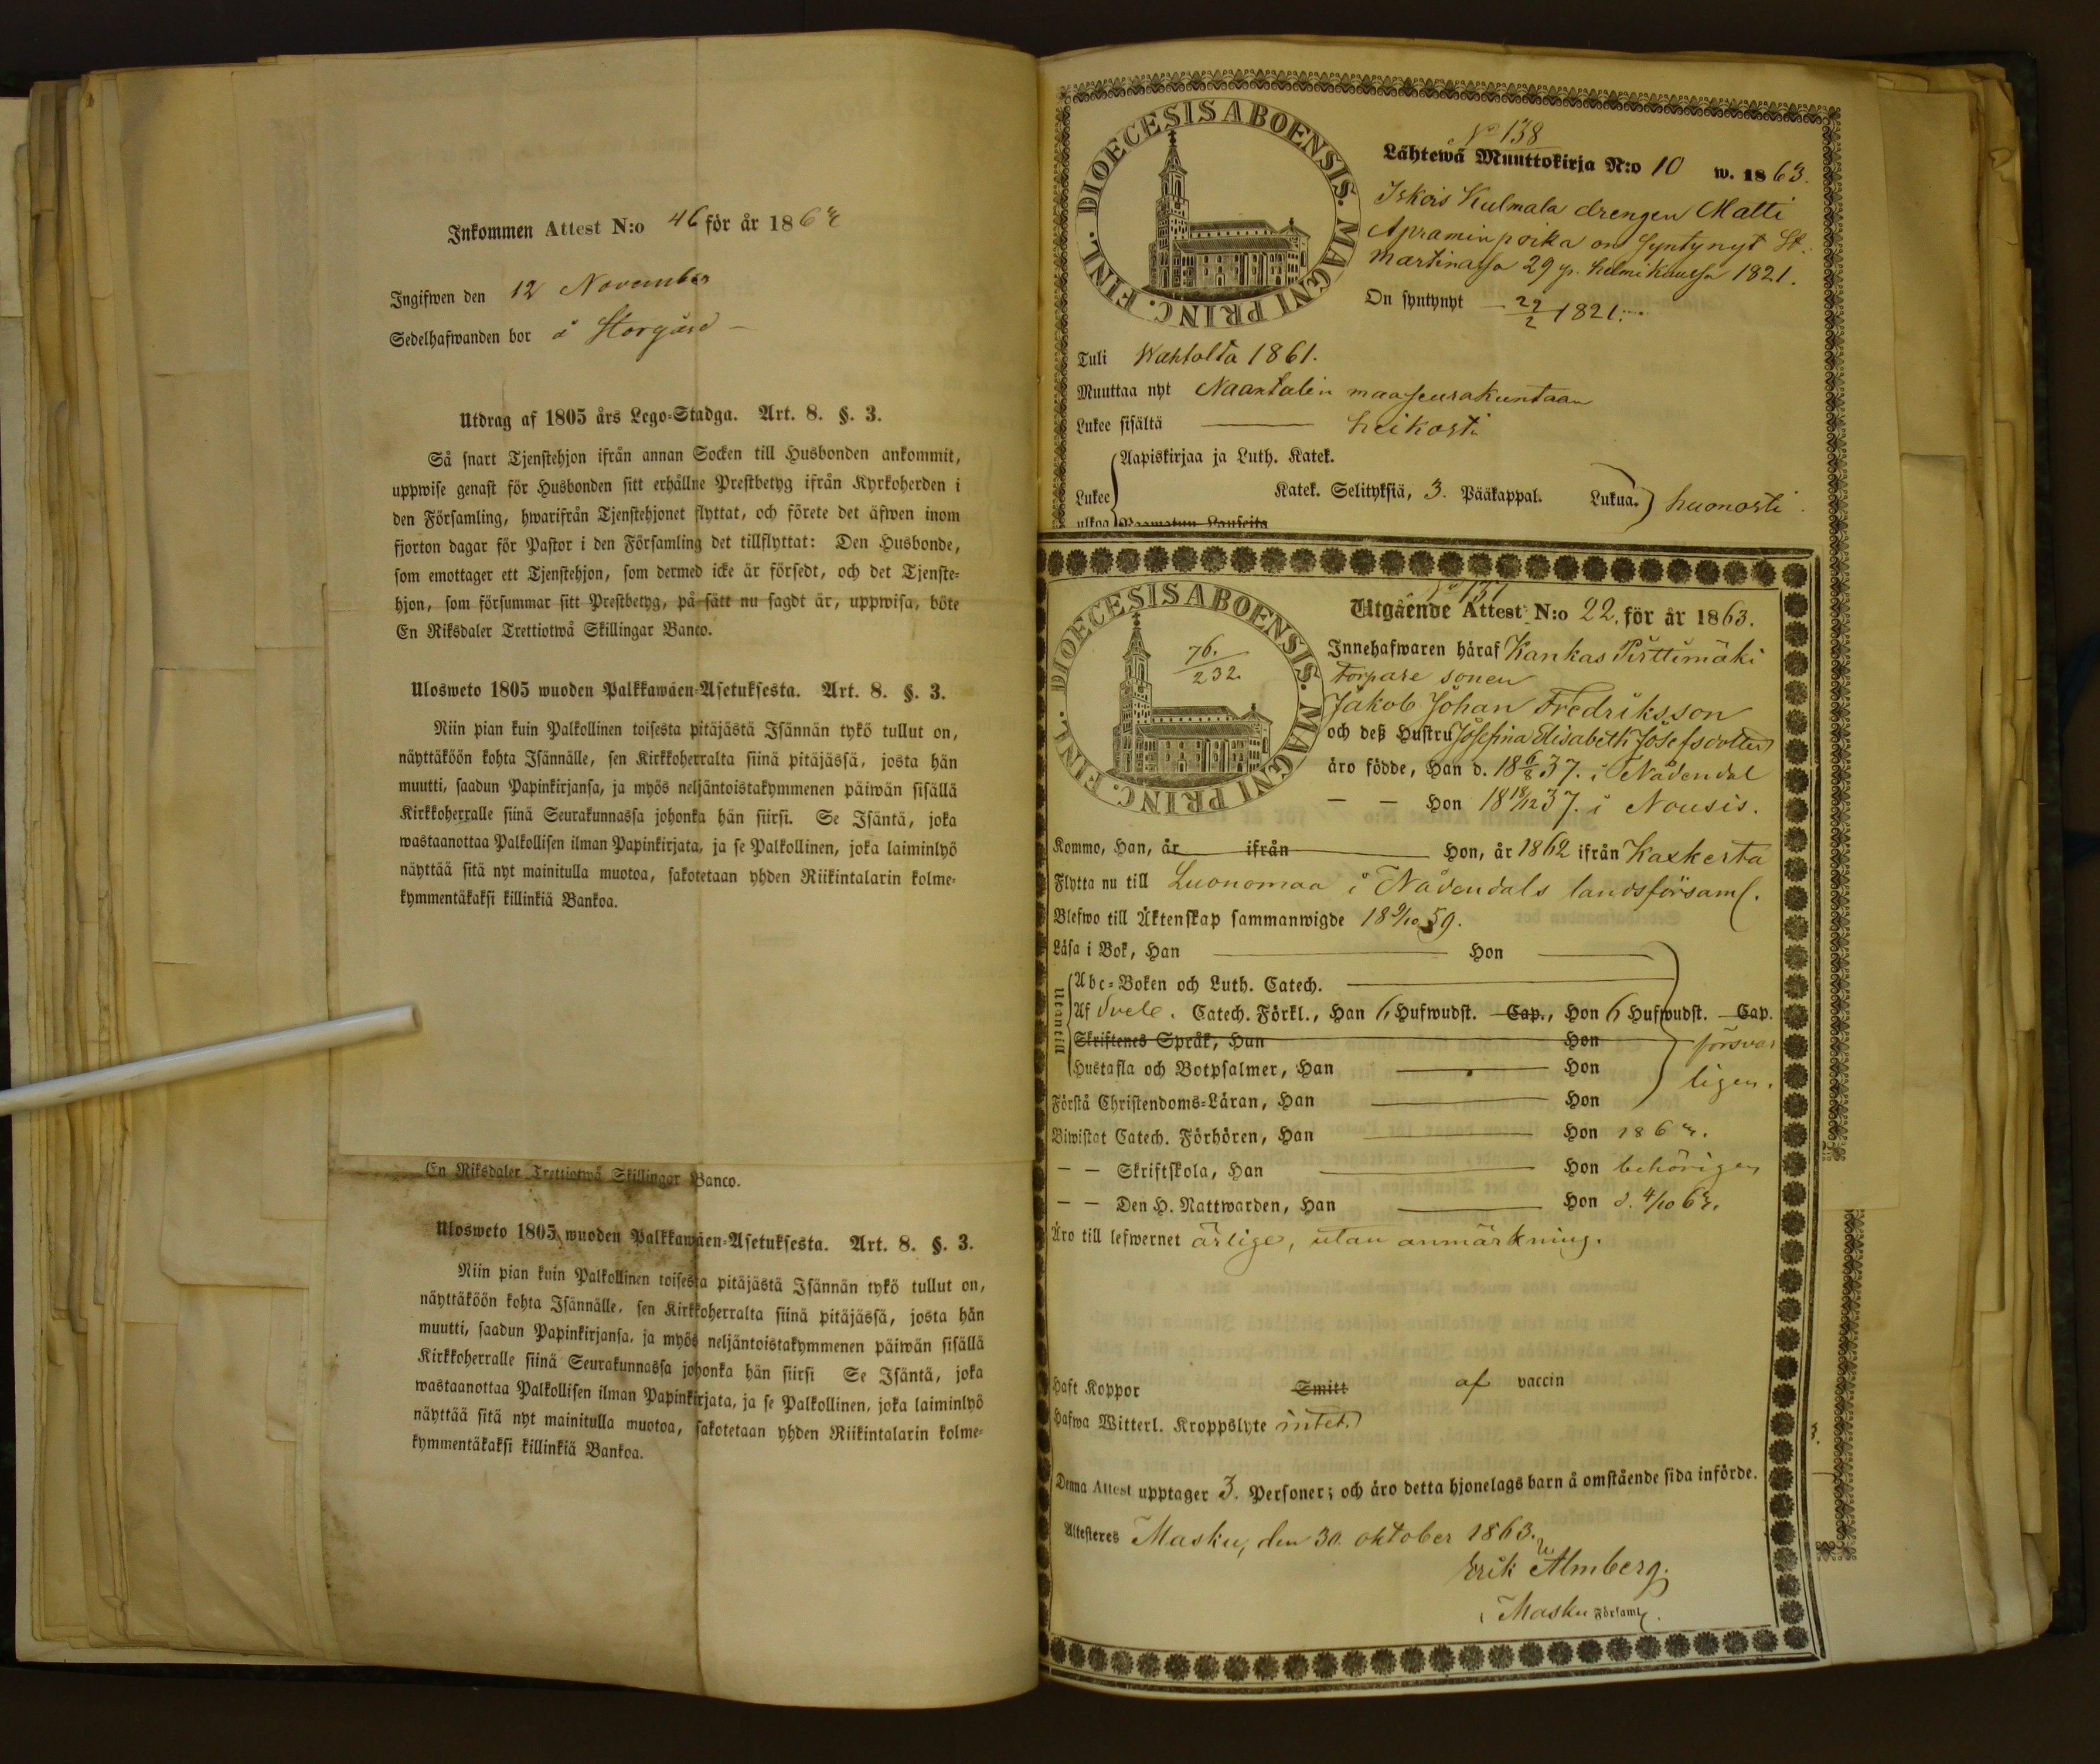 Inkommen Attest N:o 46 för år 186
Ingifwen den 12 November
Sedelhafwanden bor å Storgård
Utdrag af 1805 års Lego=Stadga. Art. 8. §. 3.
Så snart Tjenstehjon ifrån annan Socken till Husbonden ankommit,
uppwise genast för Husbonden sitt erhållne Prestbetyg ifrån Kyrkoherden i
den Församling, hwarifrån Tjenstehjonet flyttat, och förete det äfwen inom
fjorton dagar för Pastor i den Församling det tillflyttat: Den Husbonde,
som emottager ett Tjenstehjon, som dermed icke är försedt, och det Tjenste=
hjon, som försummar sitt Prestbetyg, på sätt nu sagdt är, uppwisa, böte
En Riksdaler Trettiotwå Skillingar Banco.
Ulosweto 1805 wuoden Palkkawäen=Asetuksesta. Art. 8. §. 3.
Niin pian kuin Palkollinen toisesta pitäjästä Isännän tykö tullut on,
näyttäköön kohta Isännälle, sen Kirkkoherralta siinä pitäjässä, josta hän
muutti, saadun Papinkirjansa, ja myös neljäntoistakymmenen päiwän sisällä
Kirkkoherralle siinä Seurakunnassa johonka hän siirsi. Se Isäntä, joka
wastaanottaa Palkollisen ilman Papinkirjata, ja se Palkollinen, joka laiminlyö
näyttää sitä nyt mainitulla muotoa, sakotetaan yhden Riikintalarin kolme=
kymmentäkaksi killinkiä Bankoa.
En Riksdaler Trettiotwå Skillingar Banco.
Ulosweto 1805 wuoden Palkkawäen=Asetuksesta. Art. 8. §. 3.
Niin pian kuin Palkollinen toisesta pitäjästä Isännän tykö tullut on,
näyttäköön kohta Isännälle, sen Kirkkoherralta siinä pitäjässä, josta hän
muutti, saadun Papinkirjansa, ja myös neljäntoistakymmenen päiwän sisällä
Kirkkoherralle siinä Seurakunnassa johonka hän siirsi Se Isäntä, joka
wastaanottaa Palkollisen ilman Papinkirjata, ja se Palkollinen, joka laiminlyö
näyttää sitä nyt mainitulla muotoa, sakotetaan yhden Riikintalarin kolme=
kymmentäkaksi killinkiä Bankoa.
DIOECESIS ABOENSIS. MAGNI PRINC. FINL.
No 138
Lähtewä Muuttokirja N:o 10 w. 1863.
Iskois Kulmala drengen Matti
Apramin poika on syntynyt St.
Martinassa 29 p. helmikuussa 1821.
On syntynyt — 29/2 1821.
Tuli Wahtolta 1861.
Muuttaa nyt Naantalin maaseurakuntaan
Lukee sisältä — heikosti
Lukee ulkoa
Aapiskirjaa ja Luth. Katek.
Katek. Selityksiä, 3. Pääkappal. Lukua. huonosti
Raamatun Lauseita
DIOECESIS ABOENSIS. MAGNI PRINC. FINL.
76./232.
No 137
Utgående Attest N:o 22. för år 1863.
Innehafwaren häraf Kankas Pirttimäki
torpare sonen
Jakob Johan Fredriksson
och deß Hustru Josefina Elisabeth Josefsdotter
äro födde, Han d. 18 6/8 37. i Nådendal
— — Hon 18 18/12 37. i Nousis.
Kommo, Han, år ifrån Hon, år 1862 ifrån Kaskerta
Flytta nu till Luonomaa i Nådendals landsförsaml.
Blefwo till Äktenskap sammanwigde 18 9/10 59.
Läsa i Bok, Han — Hon —
Utantill
Abc=Boken och Luth. Catech.
Af Svele. Catech. Förkl., Han 6 Hufwudst. Cap., Hon 6 Hufwudst. Cap.
Skriftenes Språk, Han Hon försvar
Hustafla och Botpsalmer, Han — Hon ligen.
Förstå Christendoms=Läran, Han — Hon
Biwistat Catech. Förhören, Han — Hon 186
— — Skriftskola, Han — Hon behörigen
— — Den H. Nattwarden, Han — Hon d. 4/10 6
Äro till lefwernet ärlige, utan anmärkning.
Haft Koppor Smitt af vaccin
Hafwa Witterl. Kroppslyte intet.
Denna Attest upptager 3. Personer; och äro detta hjonelags barn å omstående sida införde.
Attesteres Masku, den 30. oktober 1863.
Erik Almberg.
Masku Församl.